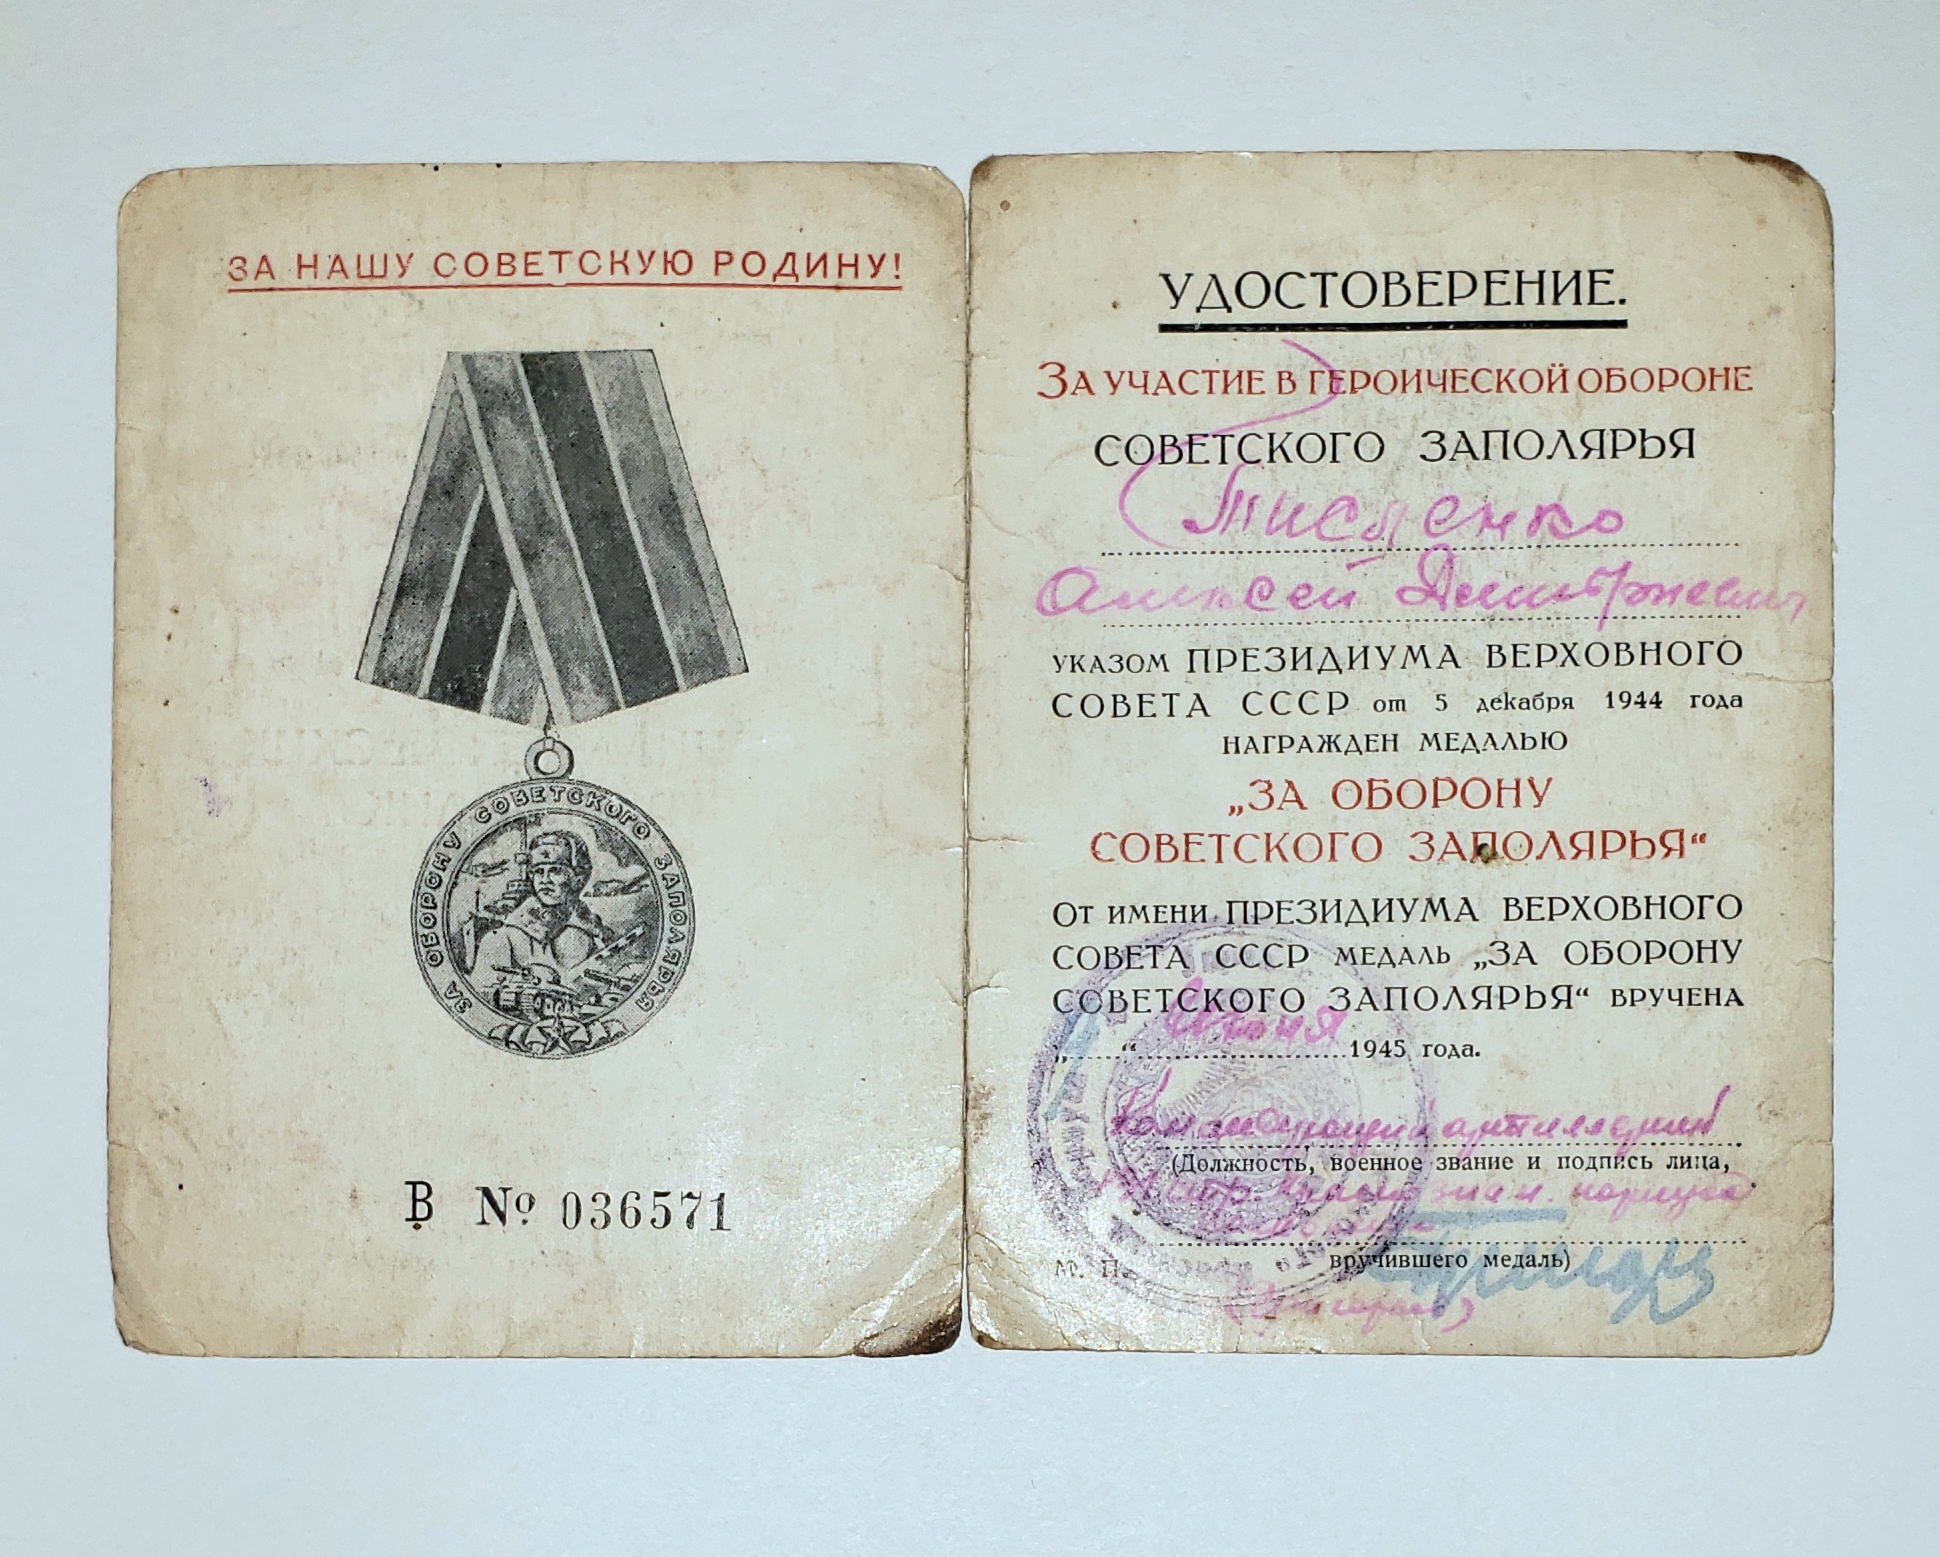 ЗА НАШУ СОВЕТСКУЮ РОДИНУ!
ЗА ОБОРОНУ СОВЕТСКОГО ЗАПОЛЯРЬЯ
В № 036571
УДОСТОВЕРЕНИЕ.
ЗА УЧАСТИЕ В ГЕРОИЧЕСКОЙ ОБОРОНЕ
СОВЕТСКОГО ЗАПОЛЯРЬЯ
Алексей Дмитриевич
УКАЗОМ ПРЕЗИДИУМА ВЕРХОВНОГО
СОВЕТА СССР от 5 декабря 1944 года
НАГРАЖДЕН МЕДАЛЬЮ
„ЗА ОБОРОНУ
СОВЕТСКОГО ЗАПОЛЯРЬЯ“
ОТ ИМЕНИ ПРЕЗИДИУМА ВЕРХОВНОГО
СОВЕТА СССР МЕДАЛЬ „ЗА ОБОРОНУ
СОВЕТСКОГО ЗАПОЛЯРЬЯ“ ВРУЧЕНА
„ “ Июня 1945 года.
Командующий артиллерией
(Должность, военное звание и подпись лица,
корпуса
М. П. вручившего медаль)